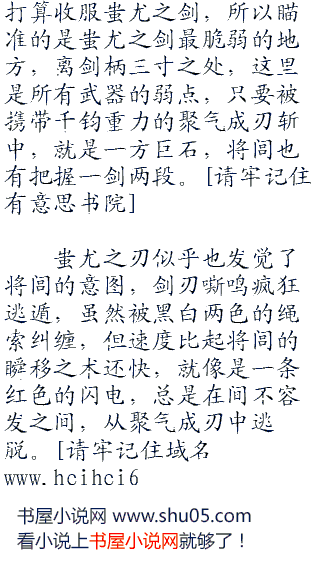 打算收服蚩尤之剑，所以瞄
准的是蚩尤之剑最脆弱的地
方，离剑柄三寸之处，这里
是所有武器的弱点，只要被
携带千钧重力的聚气成刃斩
中，就是一方巨石，将闾也
有把握一剑两段。[请牢记住
有意思书院]
蚩尤之刃似乎也发觉了
将闾的意图，剑刃嘶鸣疯狂
逃遁，虽然被黑白两色的绳
索纠缠，但速度比起将闾的
瞬移之术还快，就像是一条
红色的闪电，总是在间不容
发之间，从聚气成刃中逃
脱。[请牢记住域名
www.hcihci6
书屋小说网 www.shu05.com
看小说上书屋小说网就够了！